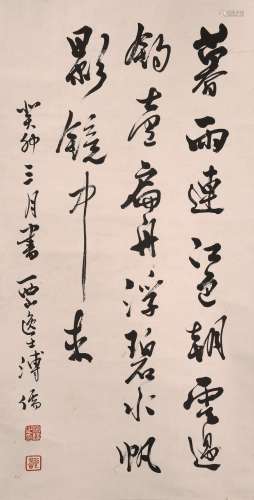 暮雨連江色朝雲過
釣臺扁舟浮碧水帆
影鏡中來
癸卯三月書 西山逸士溥儒